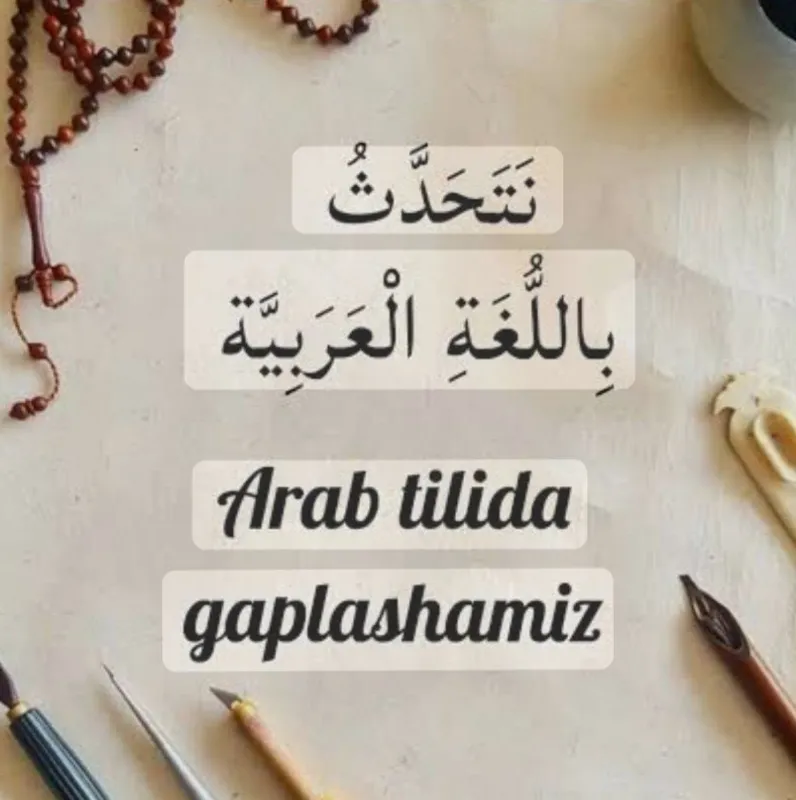 نَتَحَدَّثُ
بِاللُّغَةِ الْعَرَبِيَّة
Arab tilida
gaplashamiz